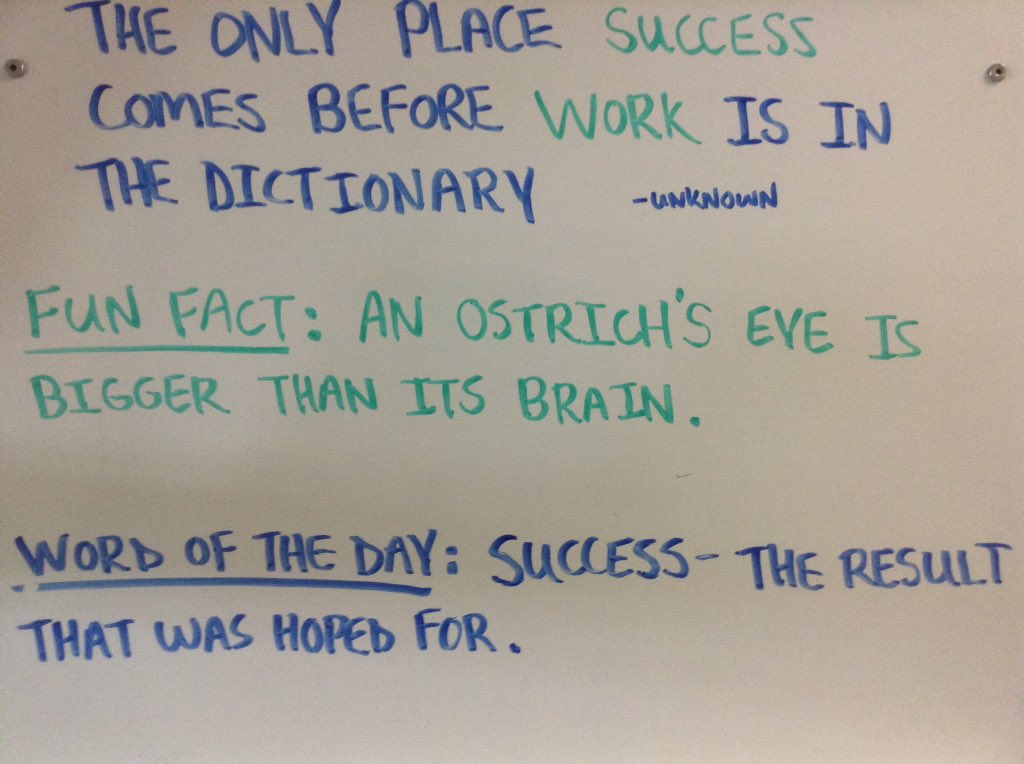 THE ONLY PLACE SUCCESS
COMES BEFORE WORK IS IN
THE DICTIONARY -UNKNOWN
FUN FACT: AN OSTRICH'S EYE IS
BIGGER THAN ITS BRAIN.
WORD OF THE DAY: SUCCESS- THE RESULT
THAT WAS HOPED FOR.